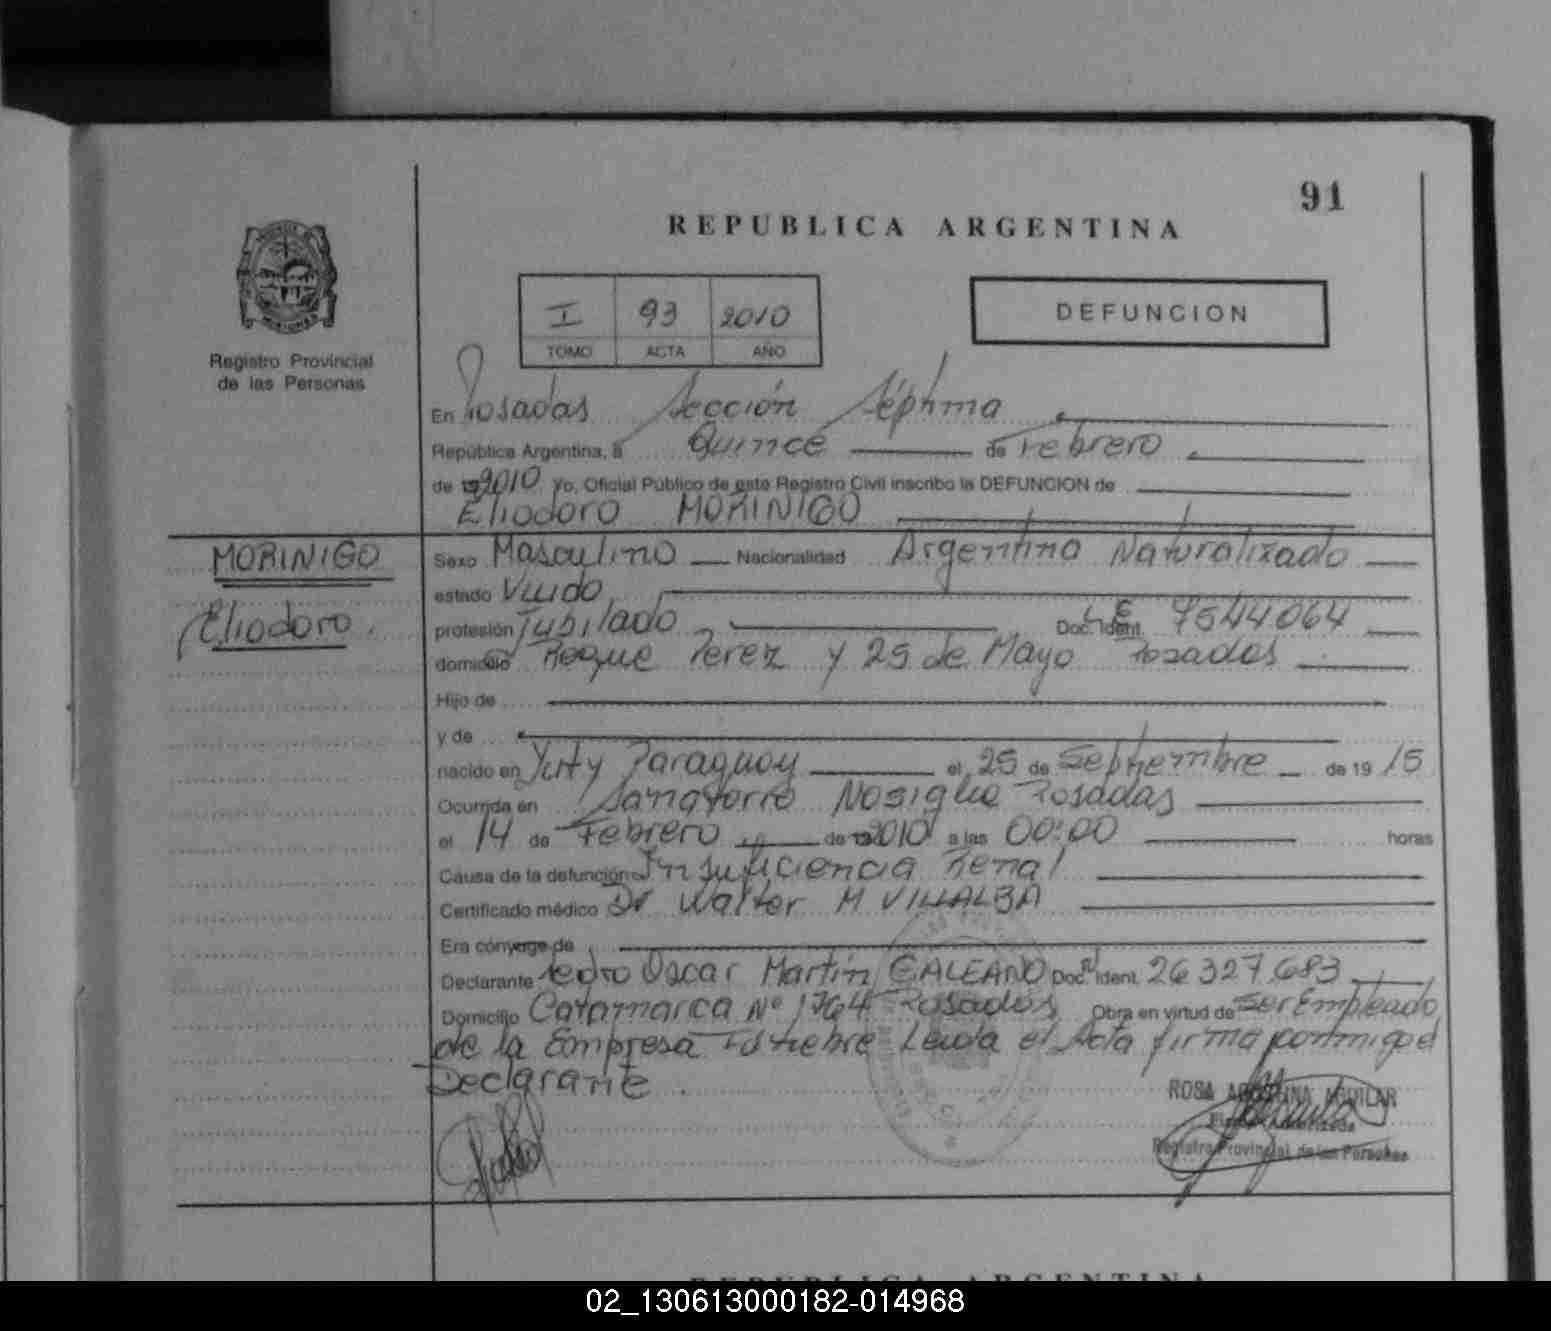 91
REPUBLICA ARGENTINA
I 93 2010
TOMO ACTA AÑO
DEFUNCION
MISIONES
Registro Provincial
de las Personas
En Posadas Sección Séptima
República Argentina, a Quince de Febrero
de 2010 Yo, Oficial Público de este Registro Civil inscribo la DEFUNCION de
Eliodoro MORINIGO
MORINIGO
Eliodoro
Sexo Masculino Nacionalidad Argentino Naturalizado
estado Viudo
profesión Jubilado Doc. Ident. L E 7544064
domicilio Roque Perez y 25 de Mayo Posadas
Hijo de
y de
nacido en Yuty Paraguay el 25 de Septiembre de 19 15
Ocurrida en Sanatorio Nosiglia Posadas
el 14 de Febrero de 2010 a las 00:00 horas
Causa de la defunción Insuficiencia Renal
Certificado médico Dr Walter M VILLALBA
Era cónyuge de
Declarante Pedro Oscar Martin GALEANO Doc. Ident. 26327.683
Domicilio Catamarca Nº 1764 Posadas Obra en virtud de Ser Empleado
de la Empresa Funebre Leida el Acta firma conmigo el
Declarante
ROSA AGOSTINA AGUILAR
Firma Autorizada
Registro Provincial de las Personas
REPUBLICA ARGENTINA
02_130613000182-014968